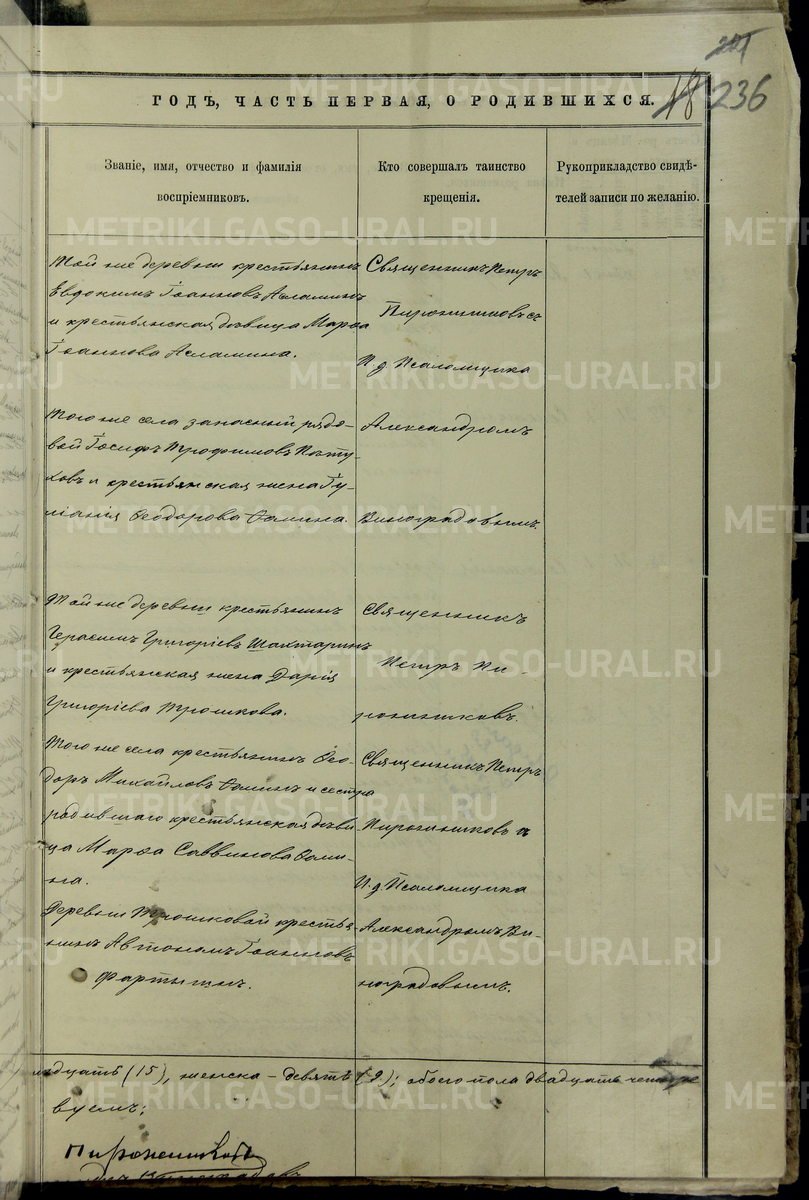 201
18 236
ГОДЪ, ЧАСТЬ ПЕРВАЯ, О РОДИВШИХСЯ.
Званіе, имя, отчество и фамилія
воспріемниковъ.
Кто совершалъ таинство
крещенія.
Рукоприкладство свидѣ-
телей записи по желанію.
Той же деревни крестьянинъ
Евдокимъ Іоанновъ Асламинъ
и крестьянская дѣвица Марѳа
Іоаннова Асламина.
Священникъ Петръ
Пироженниковъ съ
И. д. Псаломщика
Того же села запасный рядо-
вой Іосифъ Трофимовъ Пасту-
ховъ и крестьянская жена Іу-
ліанія Ѳеодорова Ѳомина.
Александромъ
Виноградовымъ.
Той же деревни крестьянинъ
Герасимъ Григоріевъ Шахтаринъ
и крестьянская жена Дарія
Григоріева Трошкова.
Священникъ
Петръ Пи-
роженниковъ.
Того же села крестьянинъ Ѳео-
доръ Михайловъ Ѳоминъ и сестра
родившаго крестьянская дѣви-
ца Марѳа Саввинова Ѳоми-
на.
Священникъ Петръ
Пироженниковъ съ
И. д. Псаломщика
Деревни Трошковой крестья-
нинъ Автономъ Іоанновъ
Фартыгинъ.
Александромъ Ви-
ноградовымъ.
надцать (15), женска - девять (9); обоего пола двадцать четыре
вуемъ:
Пироженниковъ
Виноградовъ
METRIKI.GASO-URAL.RU